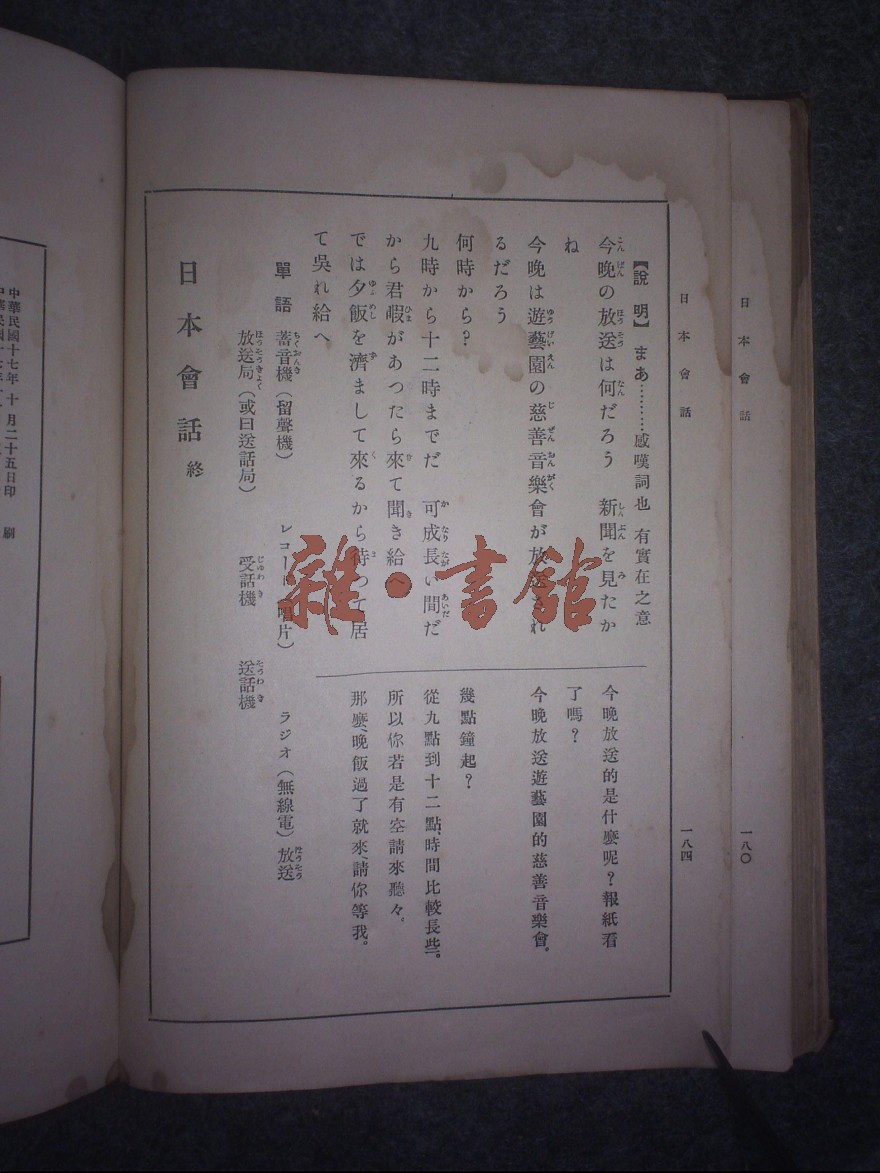 日本會話
一八〇
日本會話
一八四
【說明】 まあ…………感嘆詞也 有實在之意
今晚の放送は何だろう 新聞を見たか
ね
今晚は遊藝園の慈善音樂會が放送され
るだろう
何時から？
九時から十二時までだ 可成長い間だ
から君暇があつたら來て聞き給へ
では夕飯を濟まして來るから待つて居
て吳れ給へ
今晚放送的是什麼呢？報紙看
了嗎？
今晚放送遊藝園的慈善音樂會。
幾點鐘起？
從九點到十二點、時間比較長些。
所以你若是有空請來聽々。
那麼、晚飯過了就來、請你等我。
單語 蓄音機（留聲機） レコード（唱片） ラジオ（無線電） 放送
放送局（或曰送話局） 受話機 送話機
日本會話 終
中華民國十七年 十 月二十五日印 刷
雜·書館